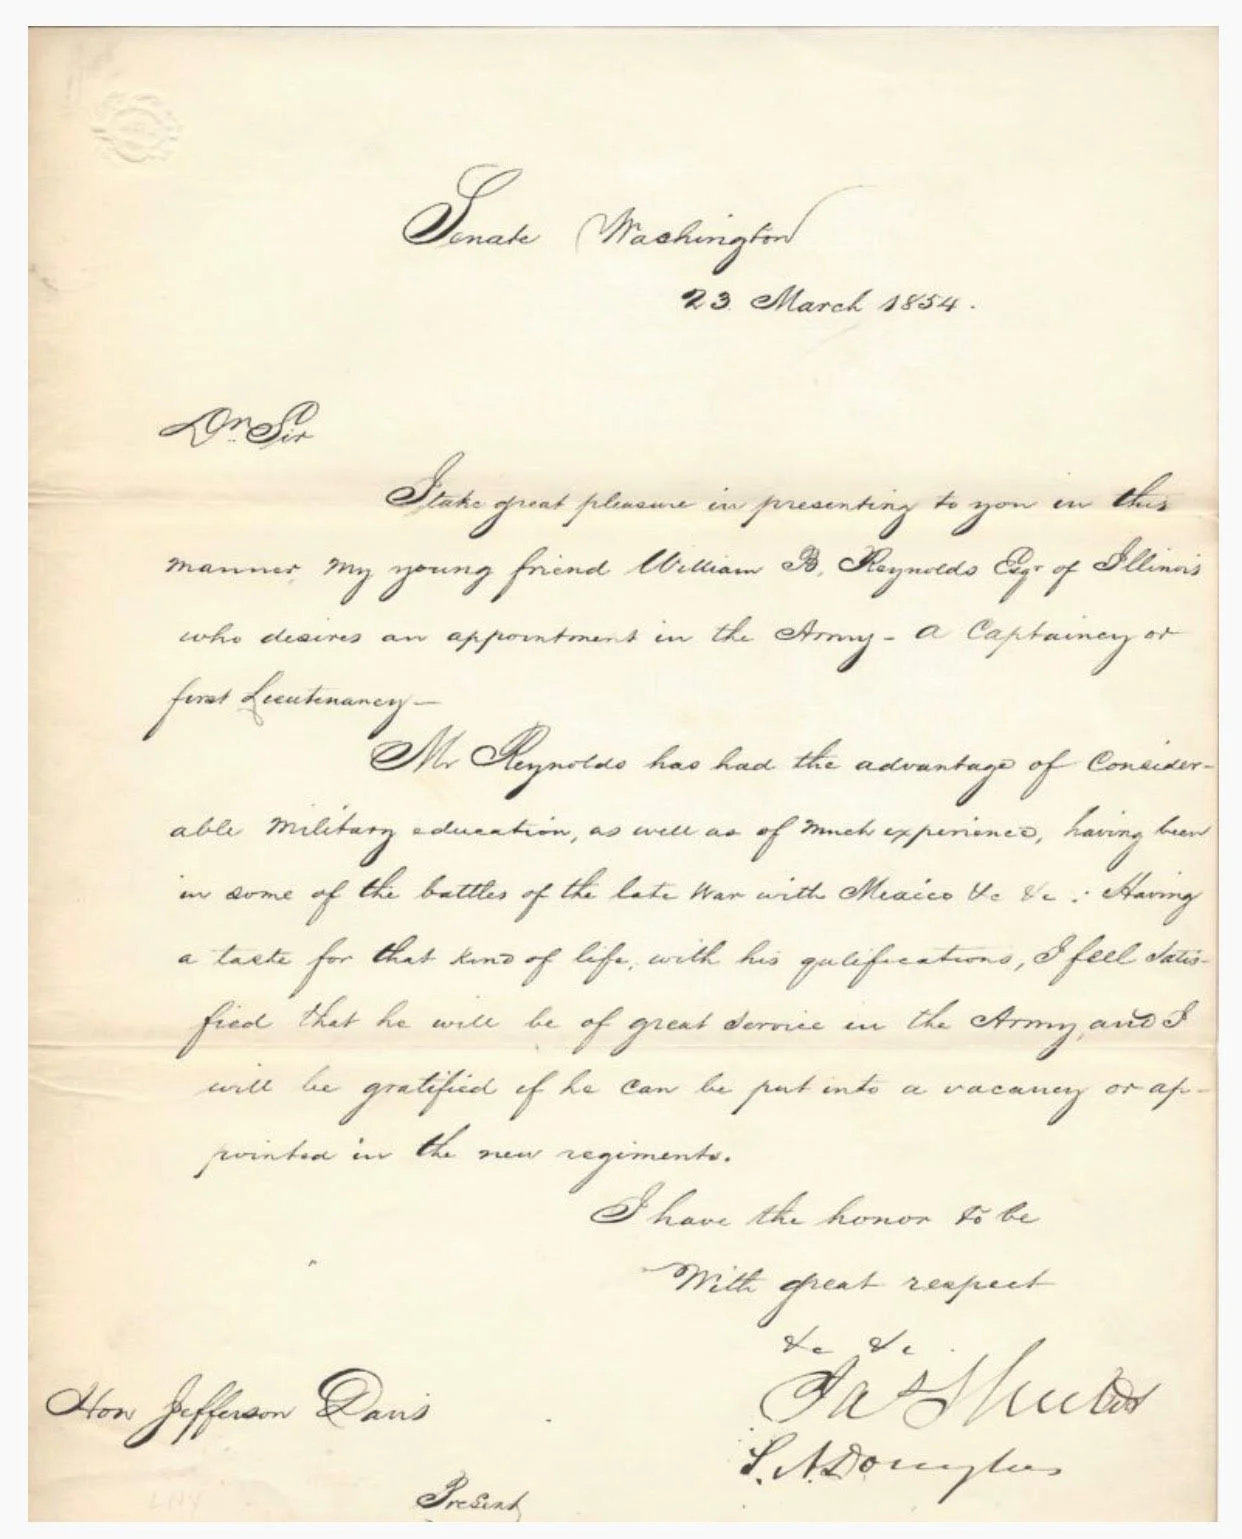 Senate Washington
23 March 1854.
Dr. Sir
I take great pleasure in presenting to you in this
manner, my young friend William B. Reynolds Esqr of Illinois
who desires an appointment in the Army - a Captaincy or
first Lieutenancy -
Mr Reynolds has had the advantage of Consider-
able Military education, as well as of much experience, having been
in some of the battles of the late War with Mexico &c &c : Having
a taste for that kind of life, with his qulifications, I feel satis-
fied that he will be of great service in the Army, and I
will be gratified if he can be put into a vacancy or ap-
pointed in the new regiments.
I have the honor to be
With great respect
&c &c.
Jas Shields
S. A. Douglas
Hon Jefferson Davis
Present